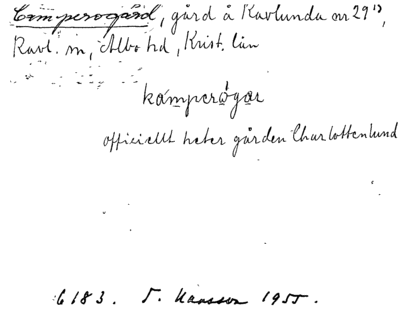 Camperogård, gård å Ravlunda nr 29¹⁵,
Ravl. sn, Albo hd, Krist. län
kamperógar
officiellt heter gården Charlottenlund
6183. T. Hansson 1955.